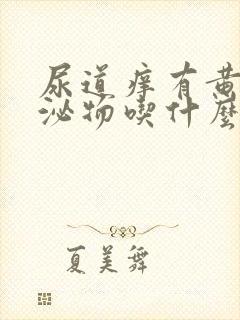 尿道痒有黄
泌物喫什麼
夏美舞